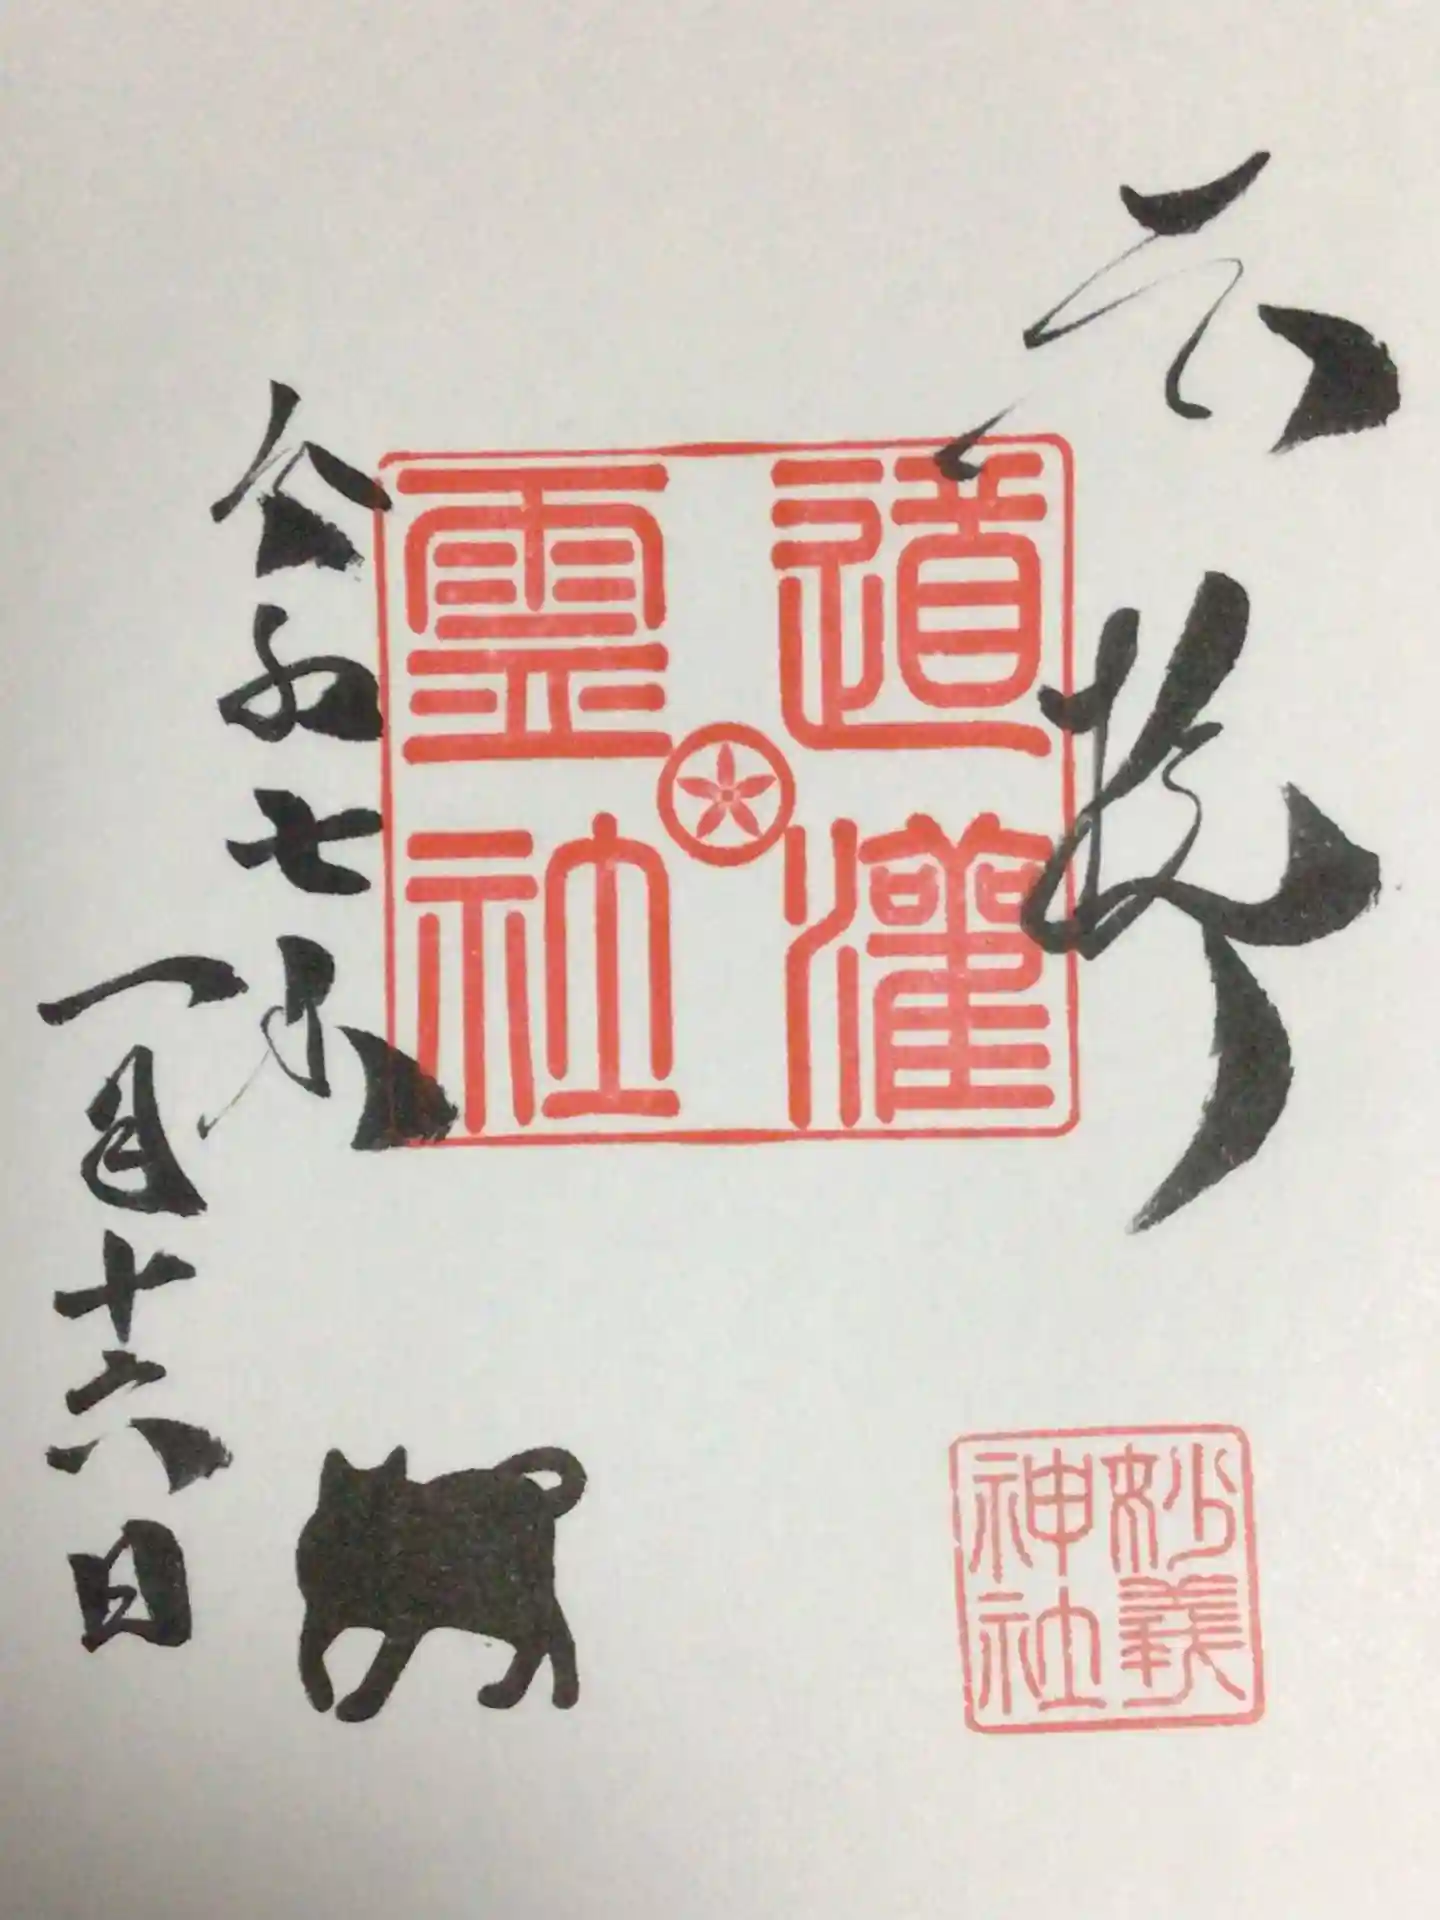 六拝
道灌
霊社
令和七年
一月十六日
妙義
神社